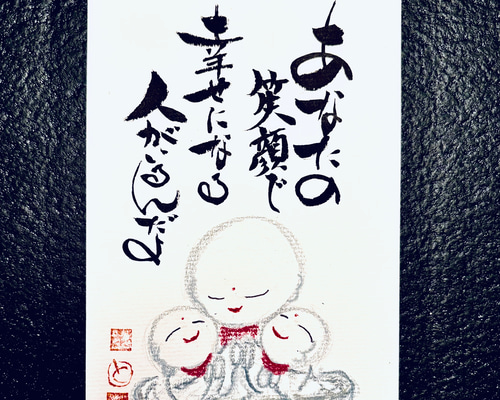 あなたの
笑顔で
幸せになる
人がいるんだよ
と